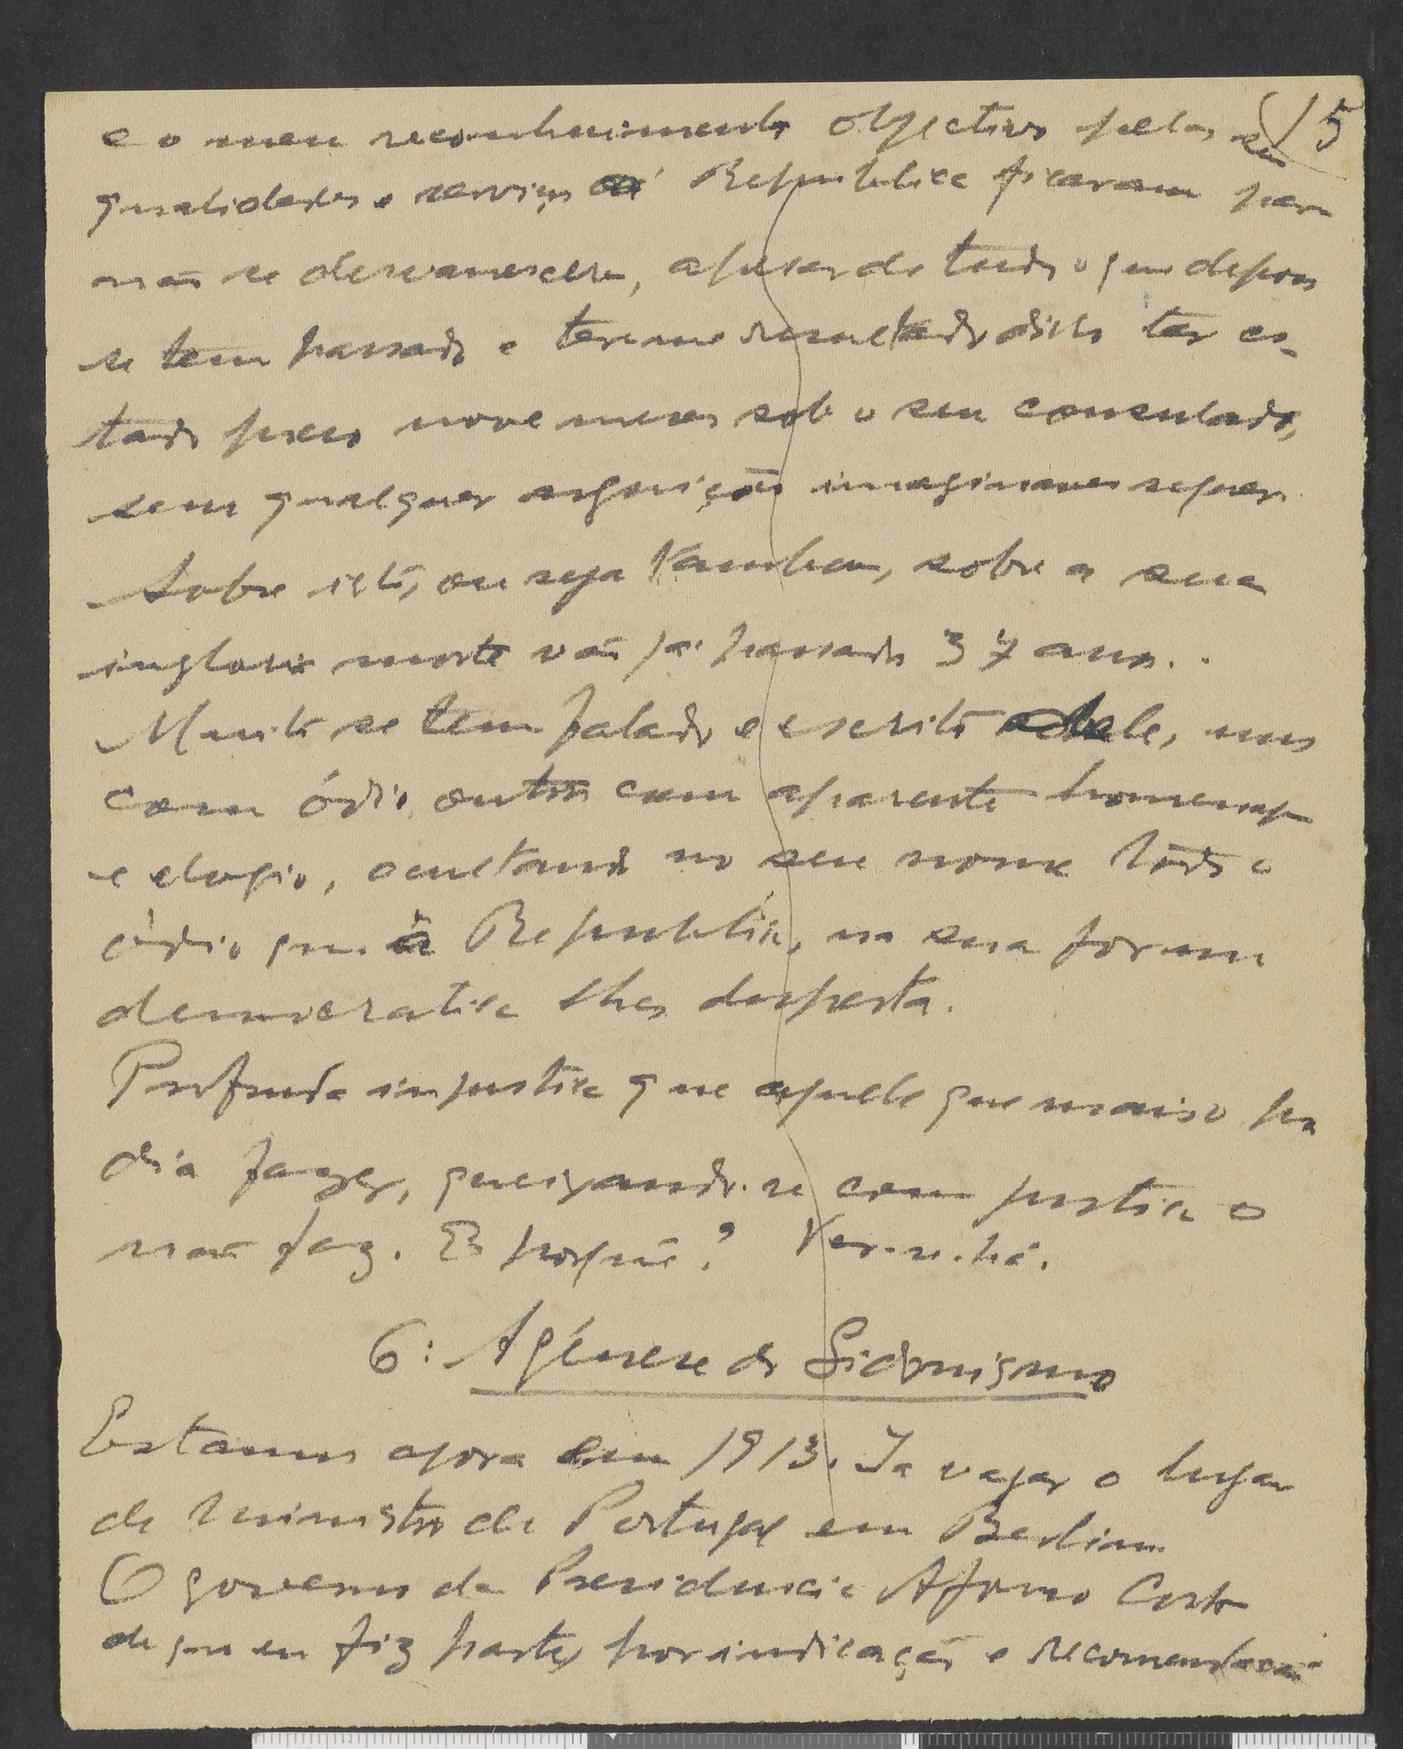 15
e o meu reconhecimento objectivo pelas suas
qualidades e serviços á Republica ficaram para
não se desvanescerem, apesar de tudo o que depois
se tem passado e ter-me resultado disto ter es-
tado preso nove meses sob o seu consulado,
sem qualquer arguição imaginaver sequer.
Sobre isto, ou seja tambem, sobre a sua
ingloria morte vão já passados 37 anos..
Muito se tem falado e escrito dele, uns
com ódio, outros com aparente homenagem
e elogio, ocultando no seu nome todo o
ódio que á Republica, na sua forma
democratica lhes desperta.
Profunda injustiça que aquele que mais o po
dia fazer, queixando-se com justiça o
não faz. E porquê? Ver-se-há.
6: A génese do Sidonismo
Estamos agora em 1913. Ia vagar o lugar
de ministro de Portugal em Berlim.
O governo da Presidencia Afonso Costa
de que eu fiz parte, por indicação e recomendação